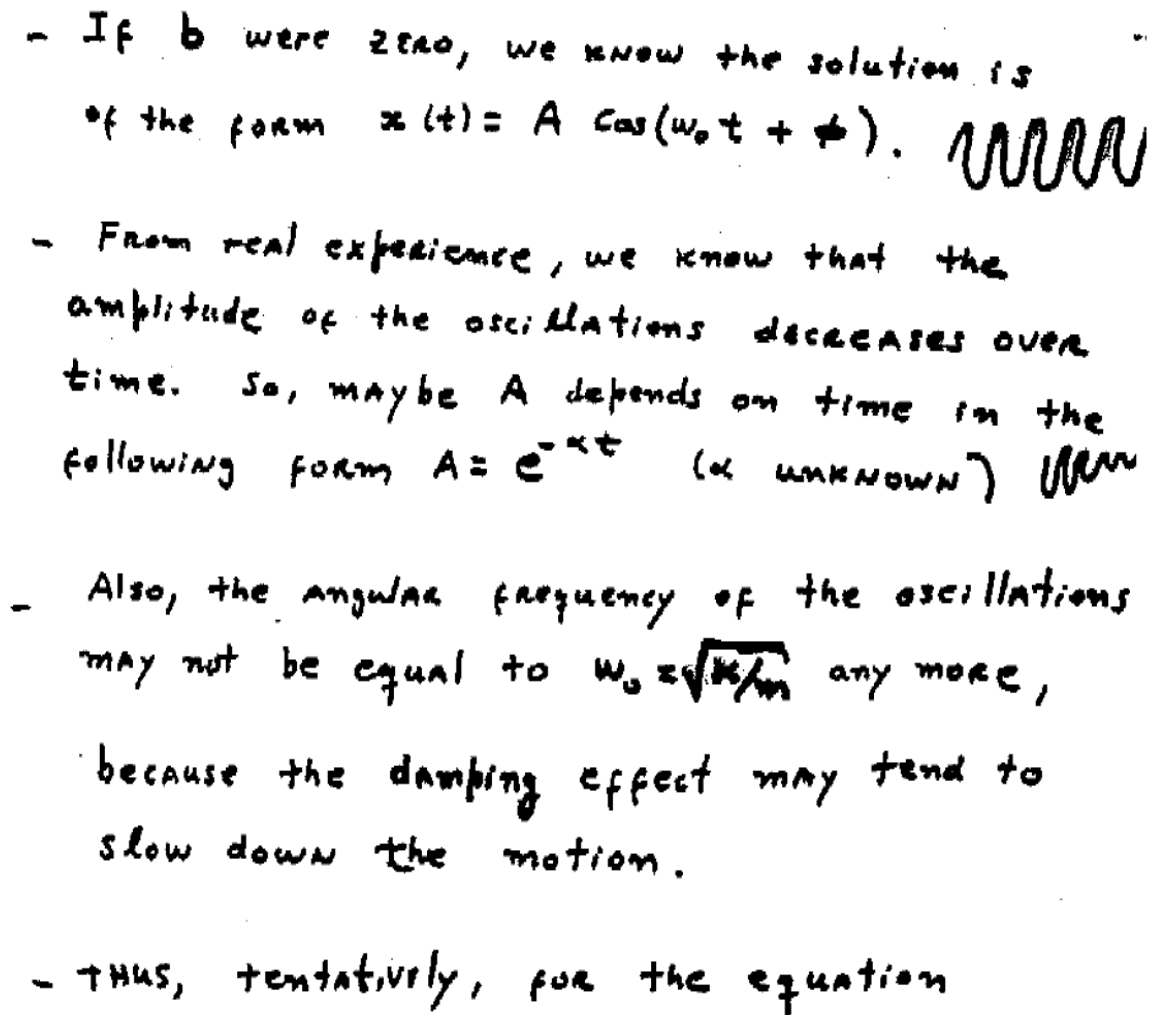 - If b were zero, we know the solution is
of the form x(t) = A Cos(ω₀t + ϕ).
- From real experience, we know that the
amplitude of the oscillations decreases over
time. So, maybe A depends on time in the
following form A = e^{-αt} (α unknown)
- Also, the angular frequency of the oscillations
may not be equal to ω₀ = √k/m any more,
because the damping effect may tend to
slow down the motion.
- THUS, tentatively, for the equation